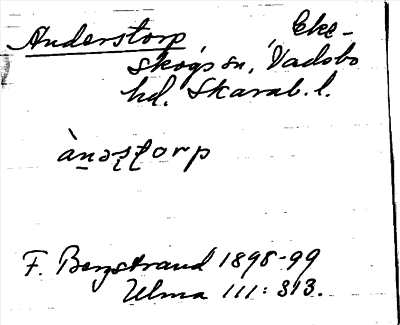 Anderstorp, Eke-
skogs sn, Vadsbo
hd. Skarab. l.
ànəstorp
F. Bergstrand 1898-99
Ulma 111: 313.